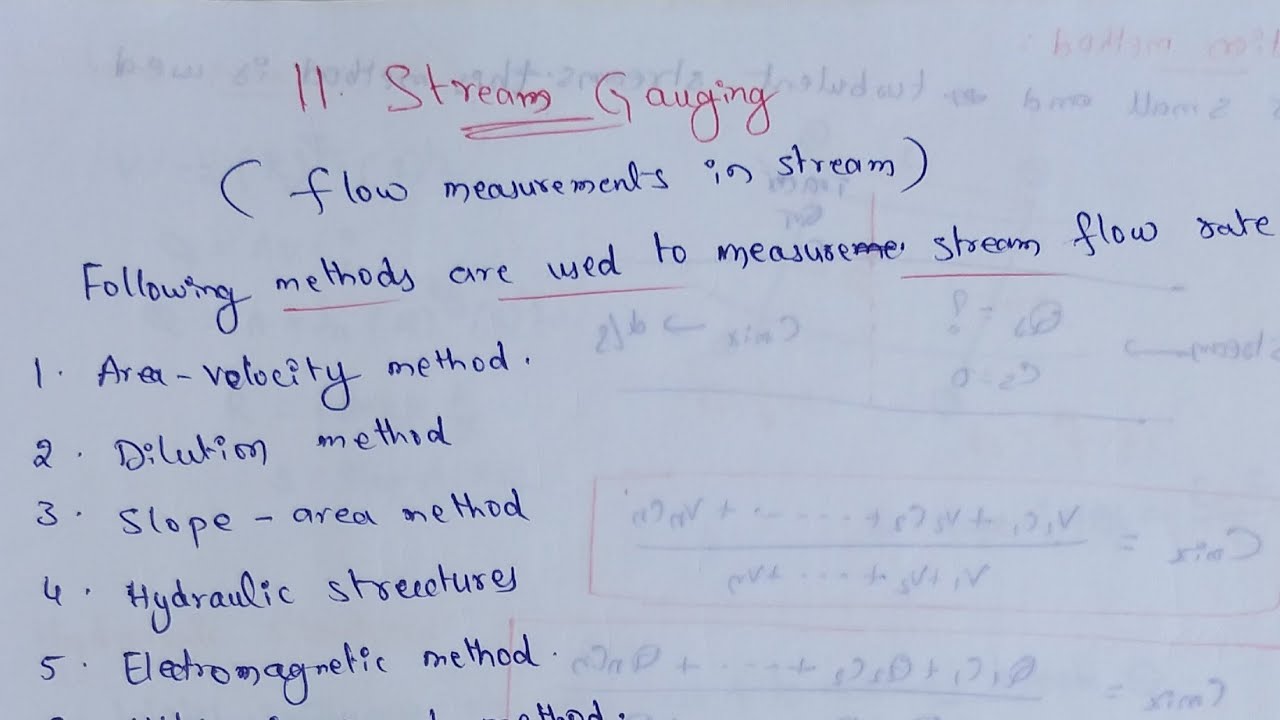 11. Stream Gauging
(flow measurements in stream)
Following methods are used to measureme. stream flow rate
1. Area-velocity method.
2. Dilution method
3. Slope-area method
4. Hydraulic structures
5. Electromagnetic method.
method.